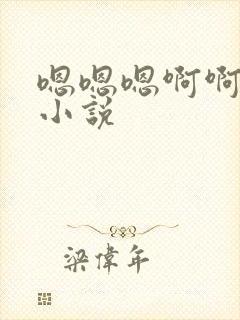 嗯嗯嗯啊啊
小說
梁偉年